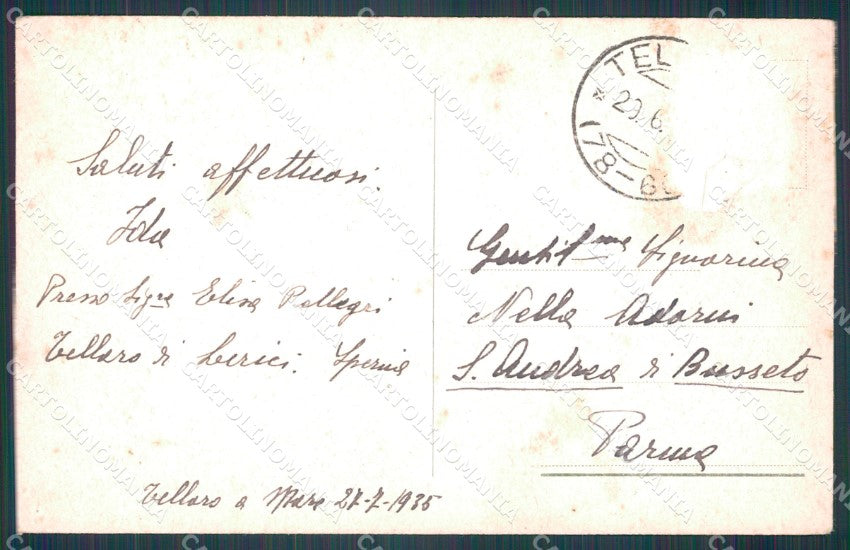 Saluti affettuosi.
Ida
Presso Sigra Elisa Pellegri
Tellaro di Lerici. Spezia
Tellaro a Mare 27-7-1935
TEL
* 29.6.
(78-60
Gentil.ma Signorina
Nella Adorni
S. Andrea di Busseto
Parma
CARTOLINOMANIA